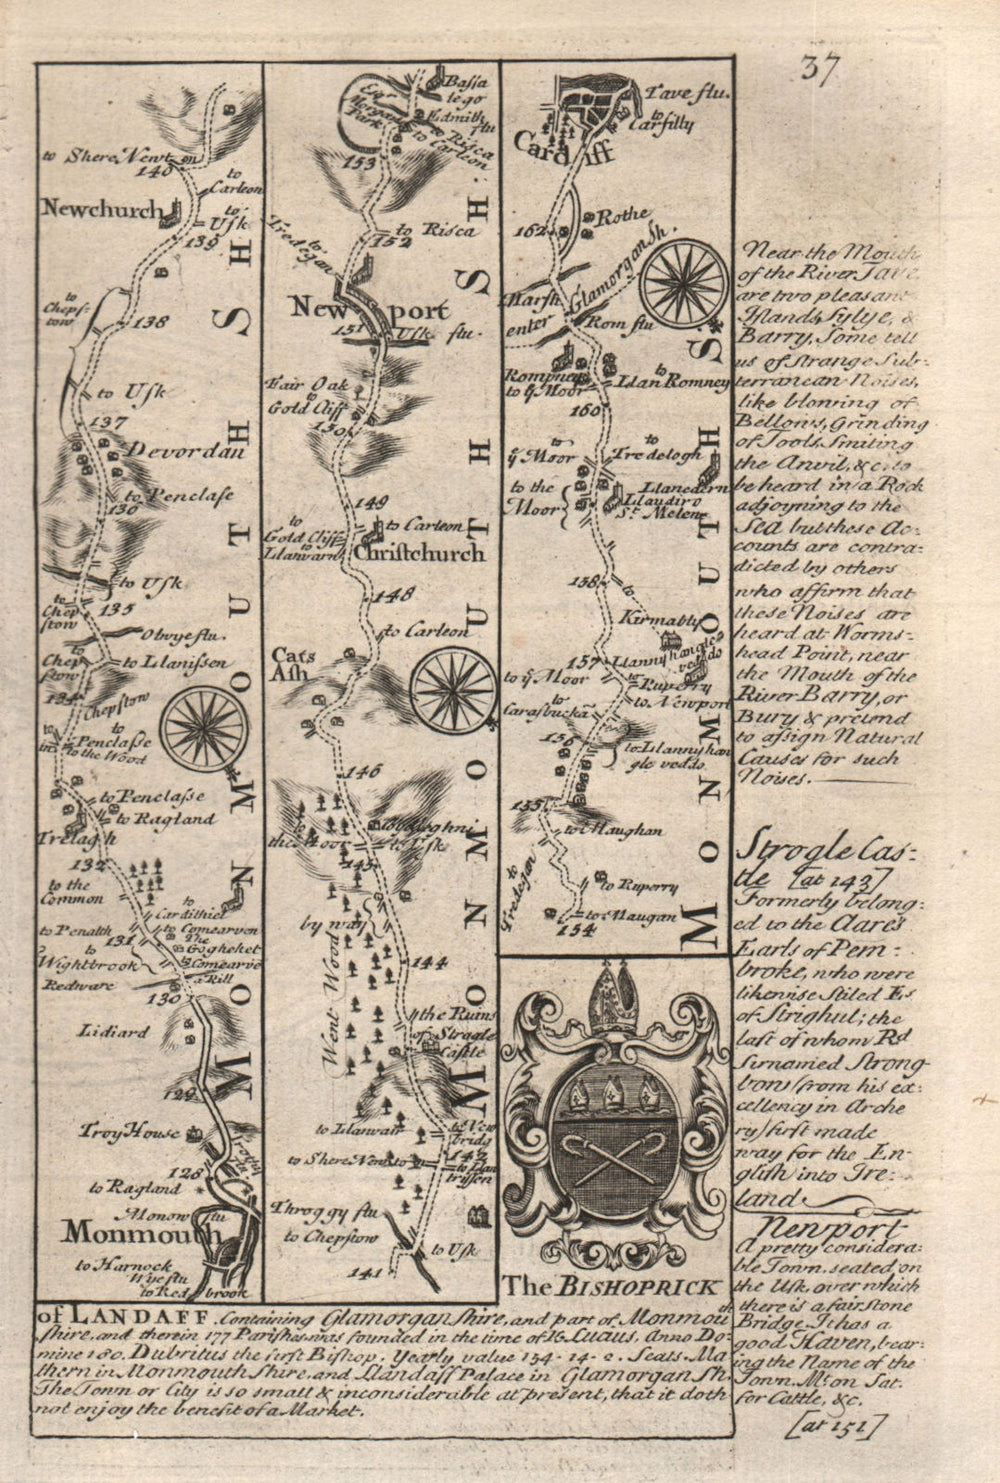 37
to Shere Newton
140
to
Carleon
Newchurch
to
Usk
139
to
Chepstow
138
to Usk
137
Devordan
to Penclase
136
to Usk
to
Chepstow
135
Obwye flu.
to
Chepstow
to Llanissen
134
Chepstow
to
Penclasse
to the Wood
to Penclasse
to Ragland
Trelagh
132
to the
Common
to
Cardithiel
to Penalth
131
to Comearvon
The
Gogheket
to
Wightbrook
to
Comearve
a Rill
Redware
130
Lidiard
129
Troy House
Trothy flu
128
to Ragland
Monow flu
Monmouth
to Harnock
Wye flu
to Redbrook
MONMOUTHSH
Bassa
lego
Esqr.
Morgans
Park
Edmith
flu
to Risca
to Carleon
153
to Risca
152
to
Tredegan
Newport
151
Usk flu.
Fair Oak
to
Gold Cliff
150
149
to
Gold Cliff
to
Llanwarn
to Carleon
Christchurch
148
to Carleon
Cats
Ash
146
to
the Moor
to Usk
145
by way
Went Wood
144
the Ruins
of Strogle
Castle
to Llanvair
to New
bridg
142
to Shere Newton
to Llan
trissen
Throggy flu
to Chepstow
to Usk
141
MONMOUTHSH:
Tave flu.
to
Carfilly
Cardiff
162
Rothe
Glamorgan Sh.
Marsh
enter
Rom flu
Rompney
to ye Moor
to
Llan Romney
160
to
ye Moor
to
Tredelogh
to the
Moor
Llanedern
Llandiro
St. Melens
158
to
Kirmably
157
Llannyhangle
veddo
to ye Moor
to
Ruperry
to Newport
to
Carasbucka
156
to Llannyhan
gle veddo
155
to Maughan
to
Tredegan
to
Ruperry
to Maugan
154
MONMOUTHS
The BISHOPRICK
of LANDAFF. Containing Glamorgan Shire, and part of Monmouth
shire, and therein 177 Parishes was founded in the time of K. Lucius, Anno Do-
mine 180. Dubritus the first Bishop. Yearly value 154-14-2. Seats. Ma
thern in Monmouth Shire, and Llandaff Palace in Glamorgan Sh.
The Town or City is so small & inconsiderable at present, that it doth
not enjoy the benefit of a Market.
Near the Mouth
of the River Tave
are two pleasant
Islands, Sylye, &
Barry, Some tell
us of strange Sub-
terranean Noises,
like blowing of
Bellows, Grinding
of Tools, Smiting
the Anvil, &c. to
be heard in a Rock
adjoyning to the
Sea but these Ac-
counts are contra-
dicted by others
who affirm that
these Noises are
heard at Worms-
head Point, near
the Mouth of the
River Barry, or
Bury & pretend
to assign Natural
Causes for such
Noises.
Strogle Cas-
tle [at 143]
Formerly belong-
ed to the Clares
Earls of Pem-
broke, who were
likewise stiled Es
of Strighul; the
last of whom Rd
Surnamed Strong
bon(from his ex-
cellency in Arche
ry)first made
way for the En-
glish into Ire-
land.
Newport
A pretty considera-
ble Town, seated on
the Usk, over which
there is a fair stone
Bridge. It has a
good Haven, bear-
ing the Name of the
Town. Mt on Sat.
for Cattle, &c.
[at 151]